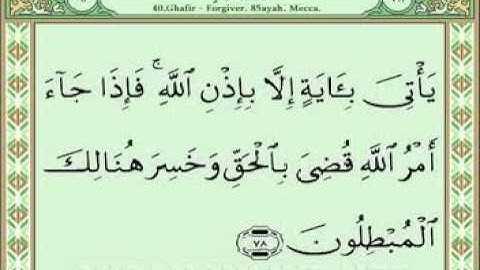 40.Ghafir - Forgiver. 85ayah. Mecca.
يَأْتِىَ بِـَٔايَةٍ إِلَّا بِإِذْنِ ٱللَّهِ ۚ فَإِذَا جَآءَ
أَمْرُ ٱللَّهِ قُضِىَ بِٱلْحَقِّ وَخَسِرَ هُنَالِكَ
ٱلْمُبْطِلُونَ ٧٨